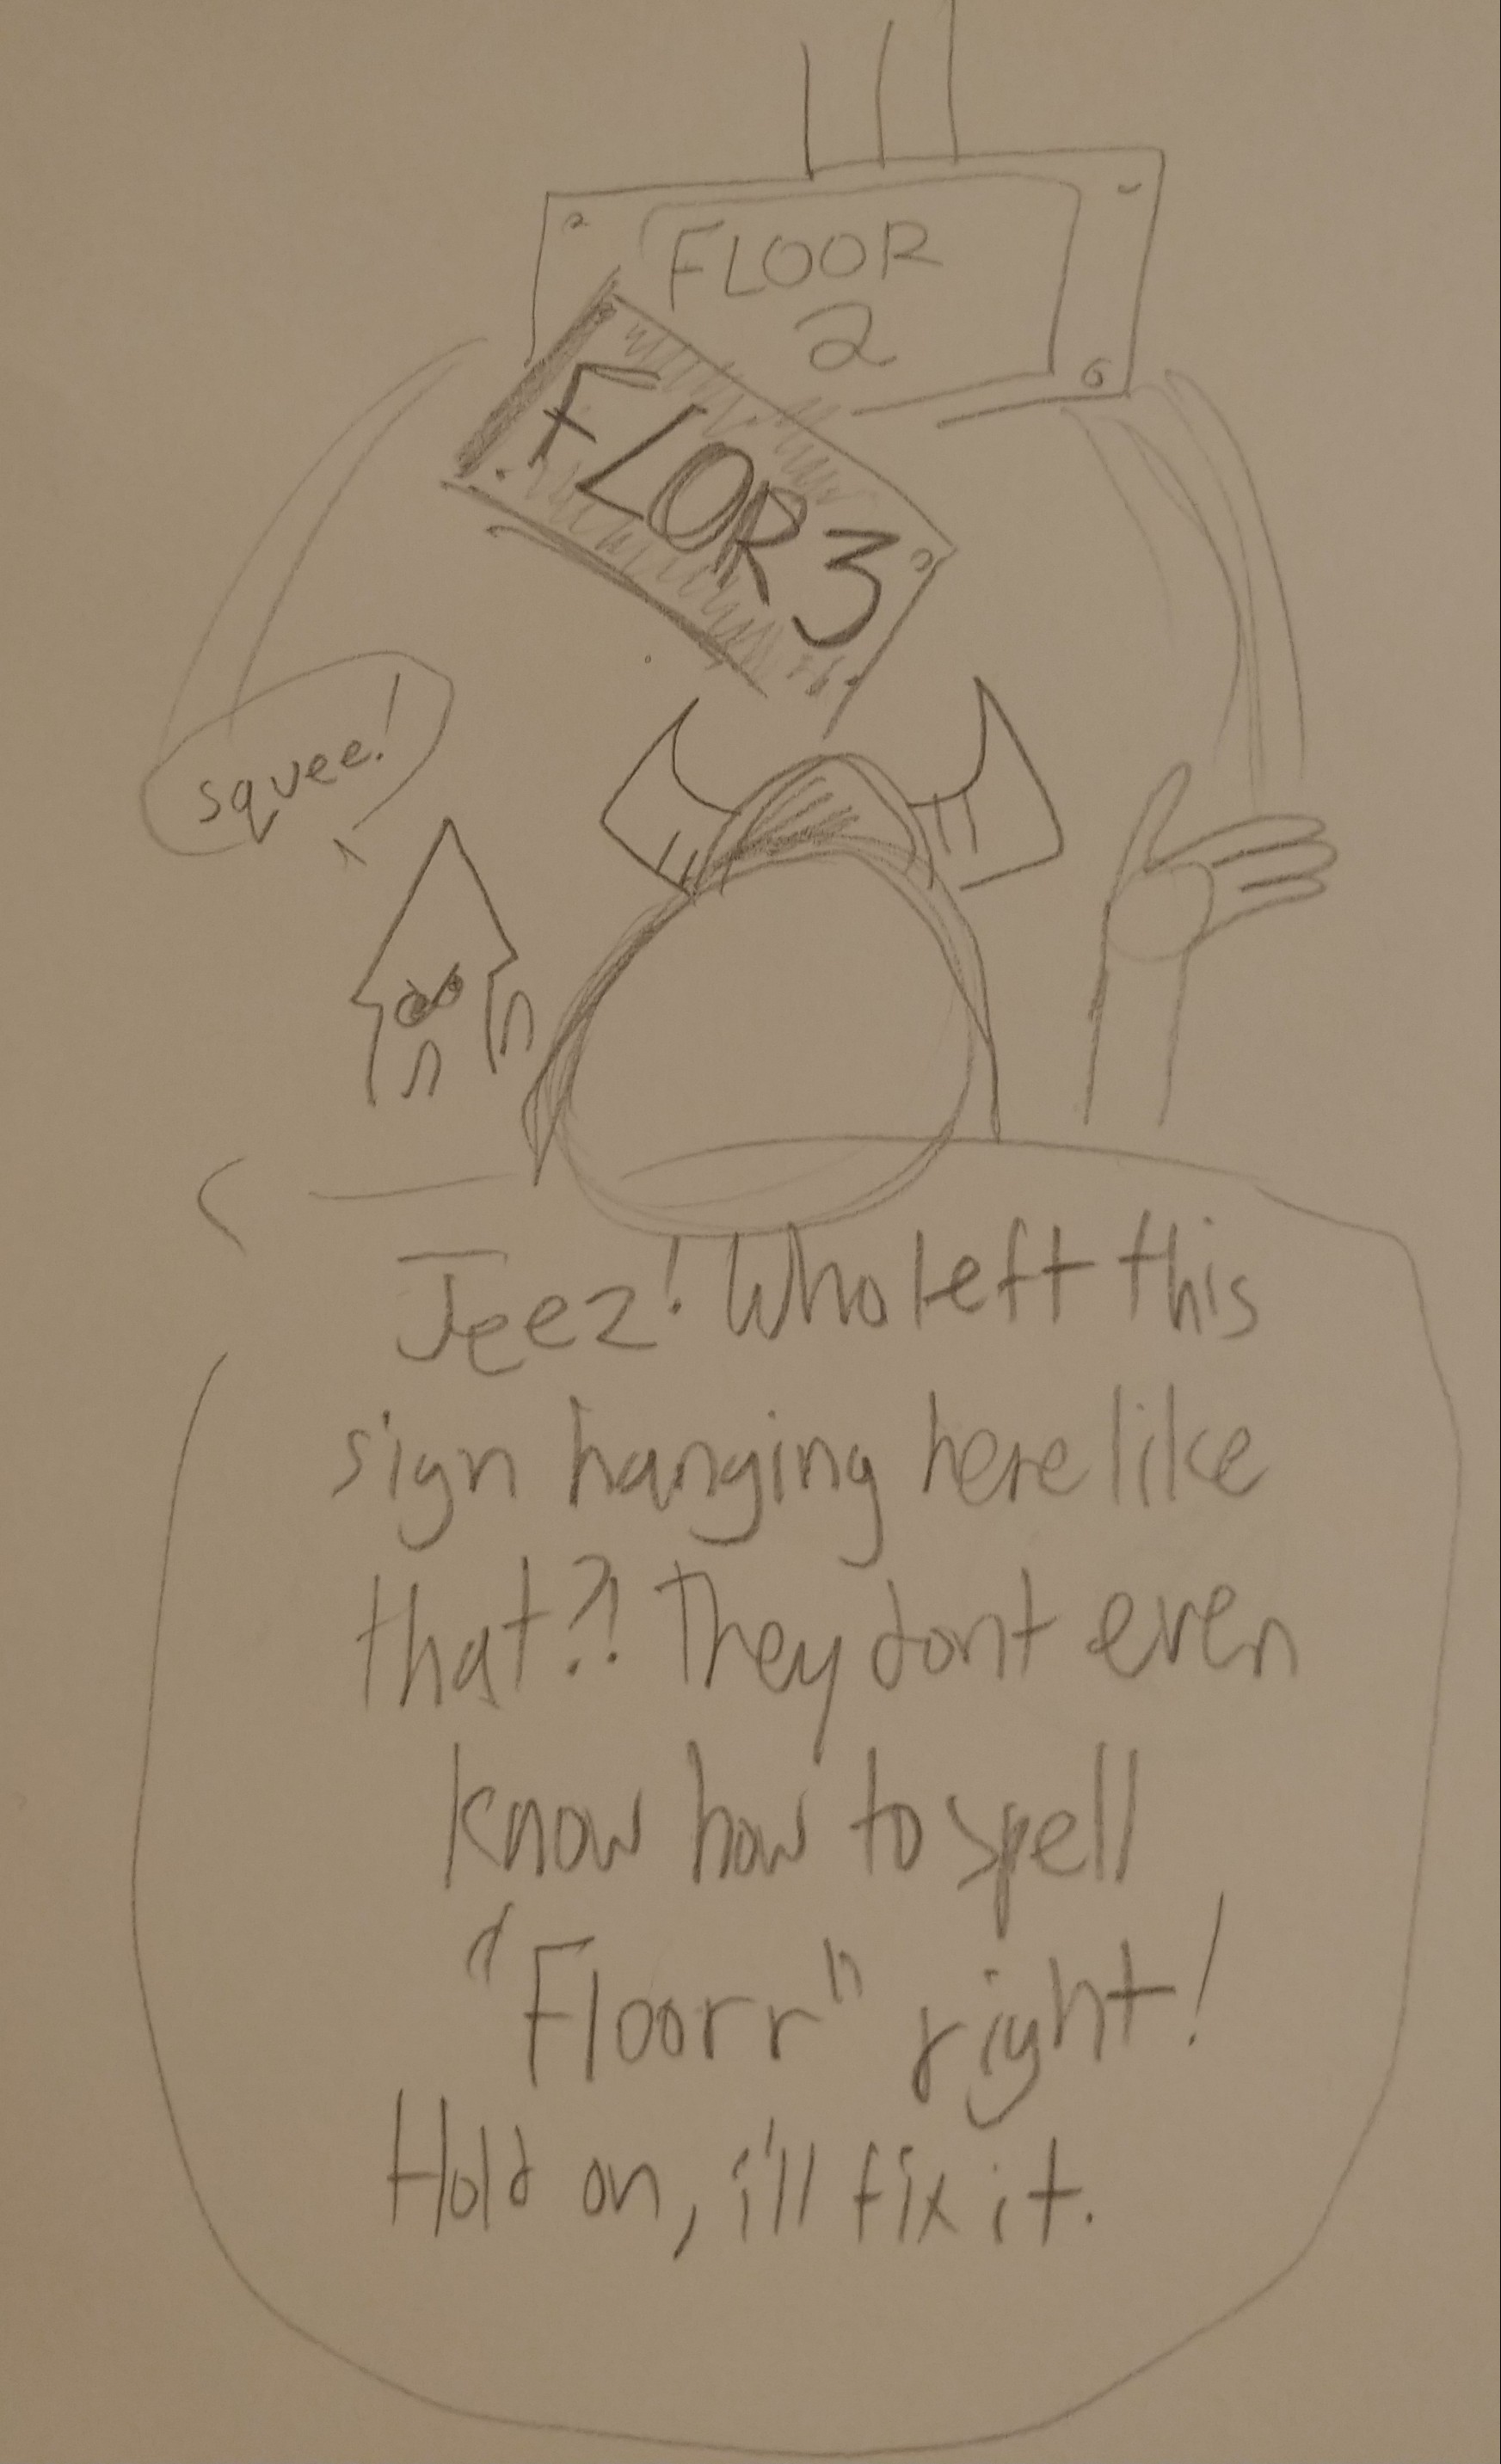 FLOOR
2
FLOR 3
squee!
Jeez! Who left this
sign hanging here like
that?! They dont even
know how to spell
"Floorr" right!
Hold on, i'll fix it.